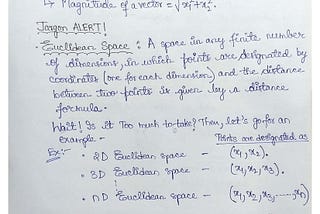 ↳ Magnitude of a vector = √x₁²+x₂².
Jargon ALERT!
• Euclidean Space : A space in any finite number
of dimensions, in which points are designated by
coordinates (one for each dimension) and the distance
between two points is given by a distance
formula.
Wait! Is it Too much to take? Then, let's go for an
example -
Points are designated as
Ex:-
• 2D Euclidean space - (x₁, x₂).
• 3D Euclidean space - (x₁, x₂, x₃).
⋮
• nD Euclidean space - (x₁, x₂, x₃, ....., xₙ)